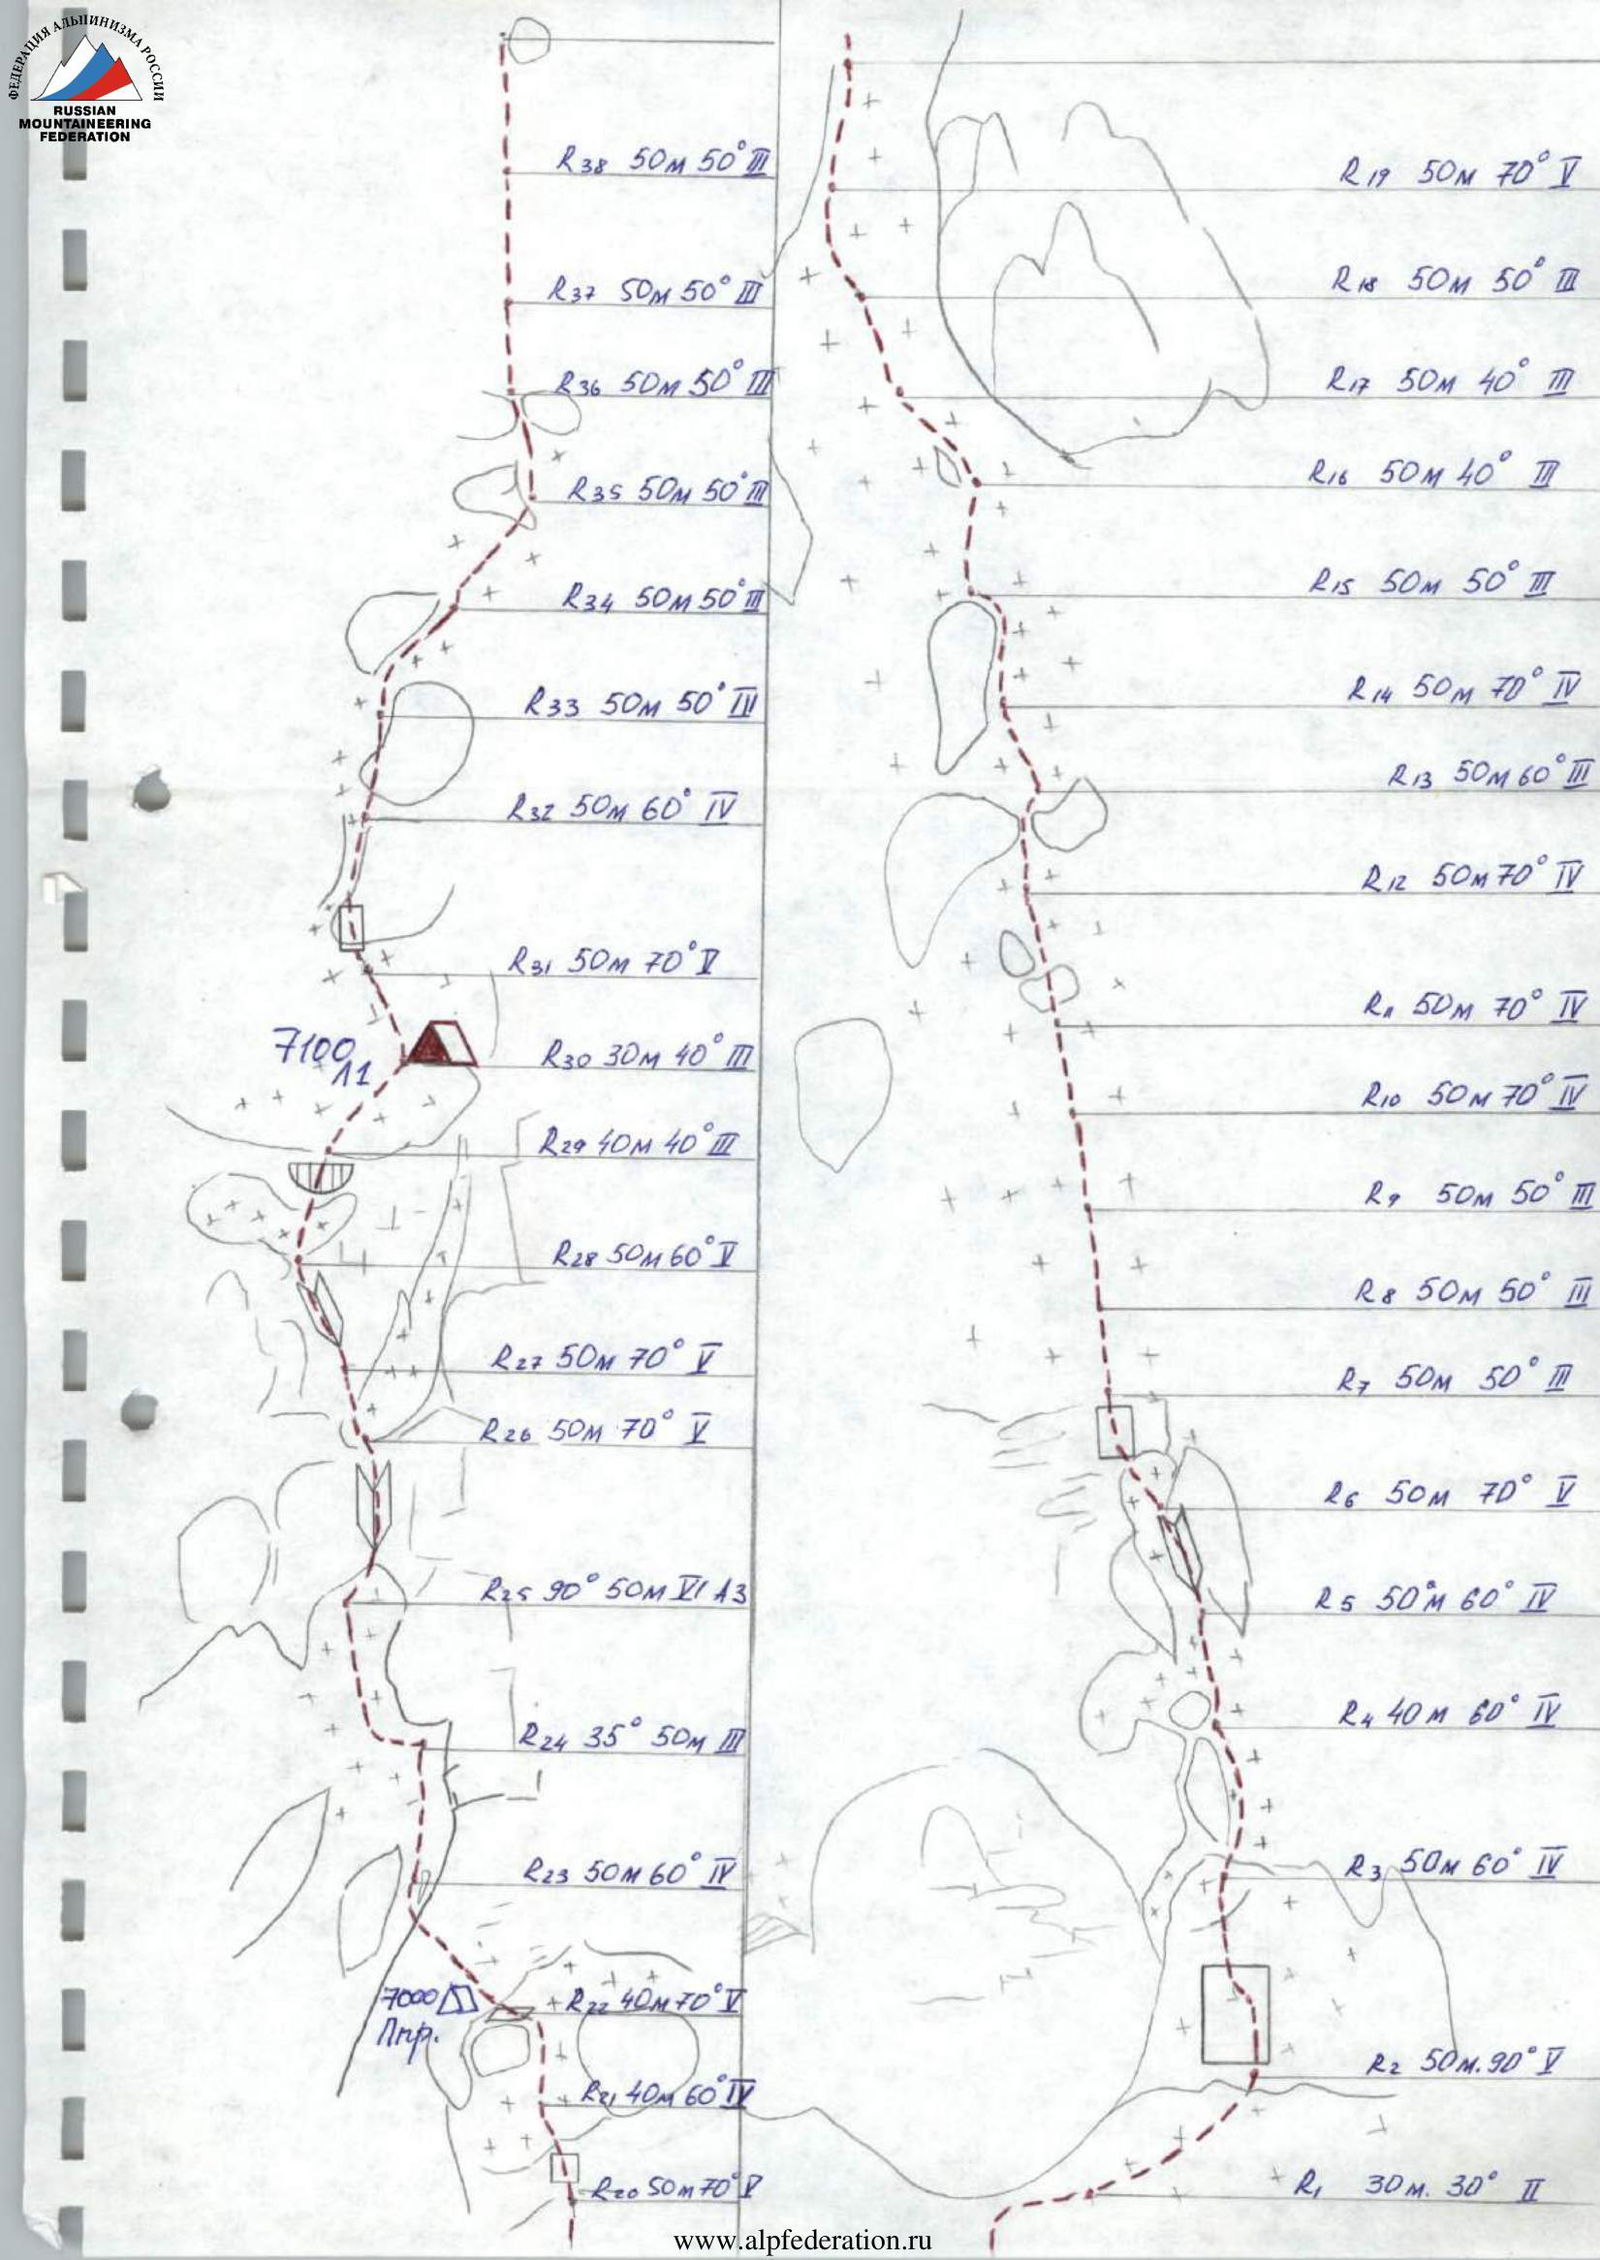 ФЕДЕРАЦИЯ АЛЬПИНИЗМА РОССИИ
RUSSIAN
MOUNTAINEERING
FEDERATION
R38 50м 50° III
R37 50м 50° III
R36 50м 50° III
R35 50м 50° III
R34 50м 50° III
R33 50м 50° IV
R32 50м 60° IV
R31 50м 70° V
7100
Л1
R30 30м 40° III
R29 40м 40° III
R28 50м 60° V
R27 50м 70° V
R26 50м 70° V
R25 90° 50м VI A3
R24 35° 50м III
R23 50м 60° IV
7000
Ппр.
R22 40м 70° V
R21 40м 60° IV
R20 50м 70° V
R19 50м 70° V
R18 50м 50° III
R17 50м 40° III
R16 50м 40° III
R15 50м 50° III
R14 50м 70° IV
R13 50м 60° III
R12 50м 70° IV
R11 50м 70° IV
R10 50м 70° IV
R9 50м 50° III
R8 50м 50° III
R7 50м 50° III
R6 50м 70° V
R5 50м 60° IV
R4 40м 60° IV
R3 50м 60° IV
R2 50м. 90° V
R1 30м. 30° II
www.alpfederation.ru